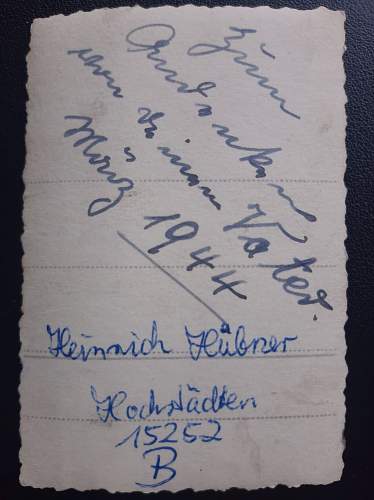 Zum
Andenken
von deinem Vater.
März 1944
Heinrich Hübner
Hochstädten
15252
B